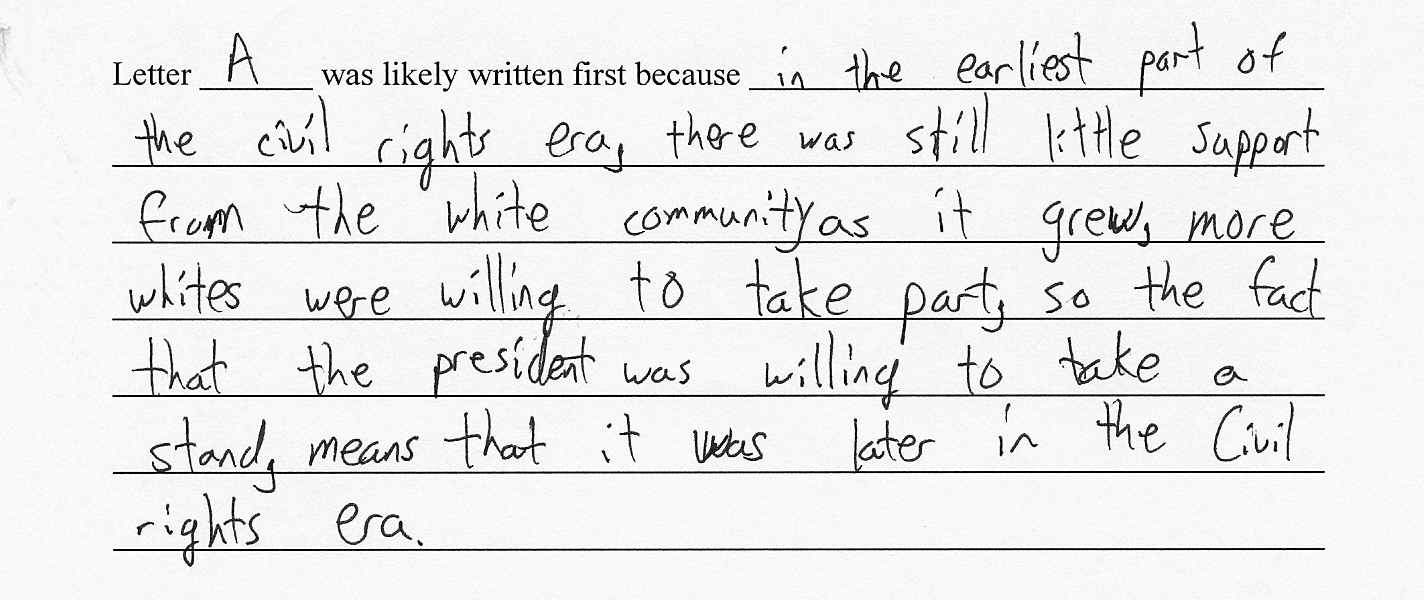 Letter A was likely written first because in the earliest part of
the civil rights era, there was still little support
from the white community as it grew, more
whites were willing to take part, so the fact
that the president was willing to take a
stand, means that it was later in the Civil
rights era.